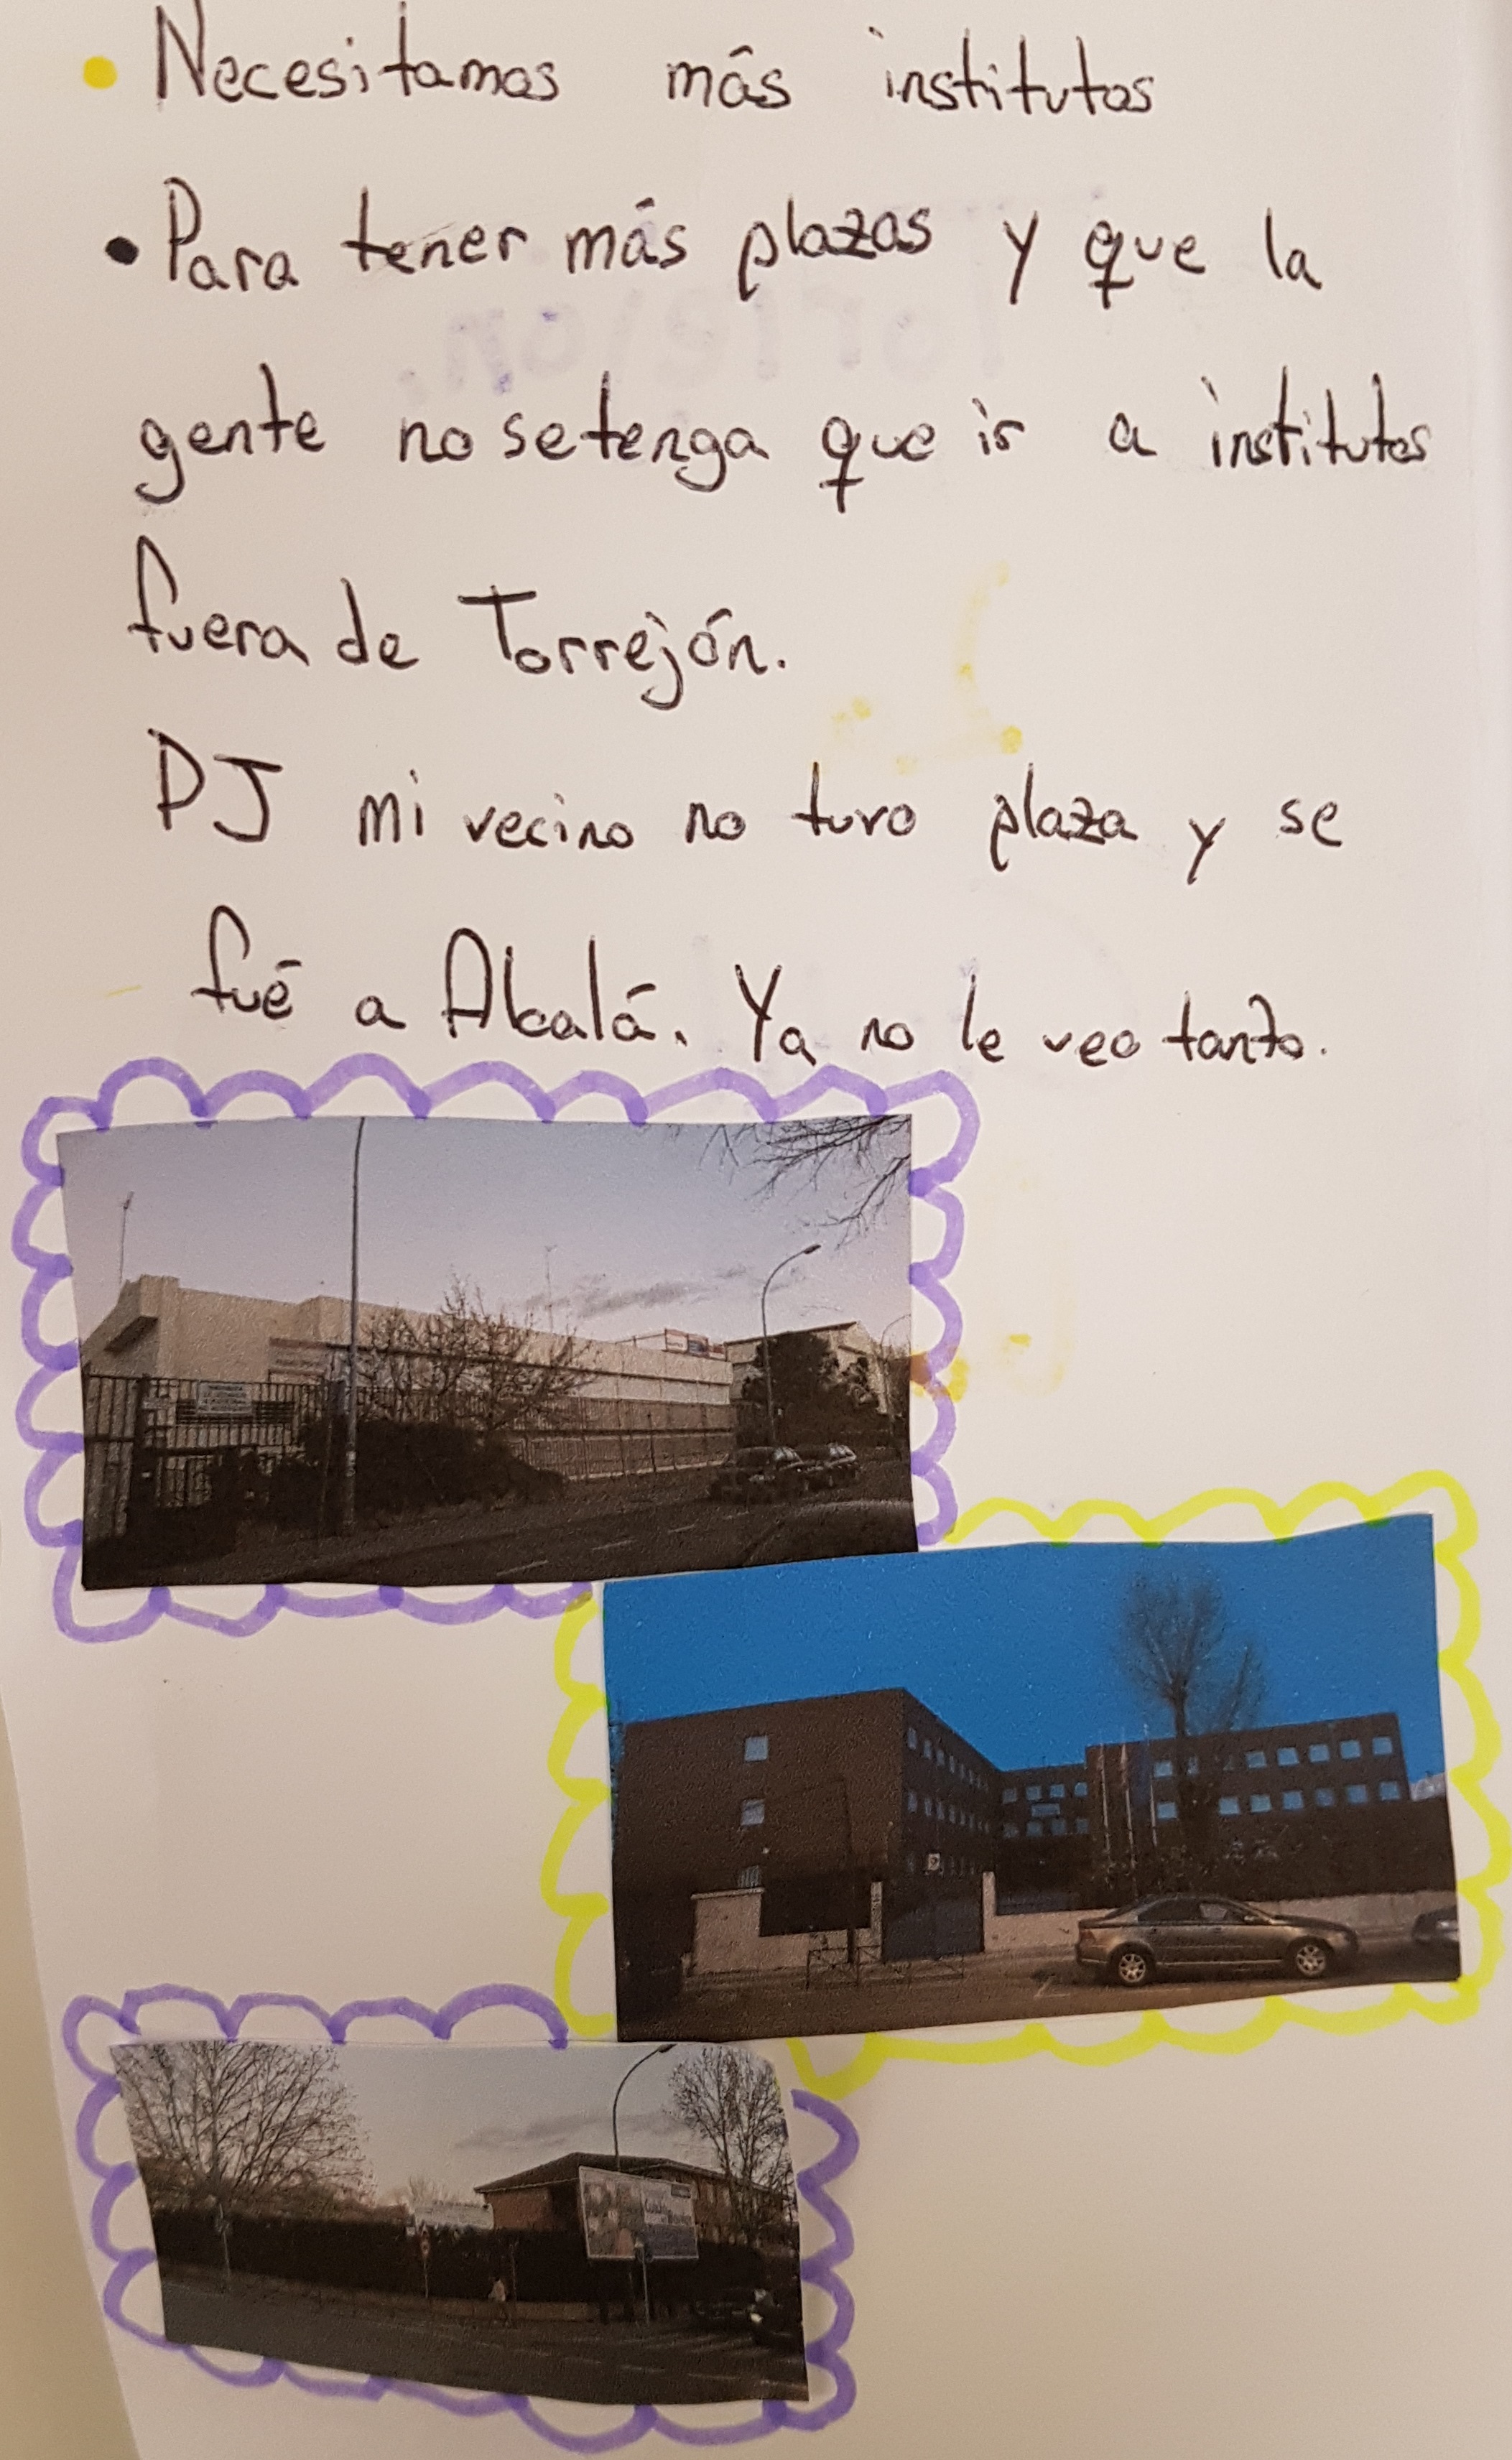 • Necesitamos más institutos
• Para tener más plazas y que la
gente no se tenga que ir a institutos
fuera de Torrejón.
DJ mi vecino no tuvo plaza y se
fué a Alcalá. Ya no le veo tanto.